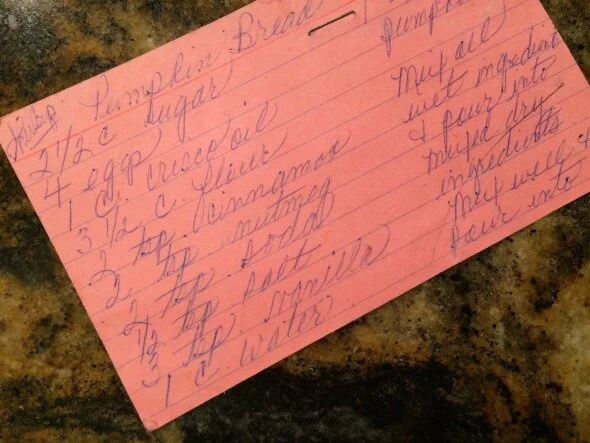 Pumpkin Bread
2 1/2 c sugar
4 eggs
1 c. crisco oil
3 1/2 c. flour
2 tsp. cinnamon
2 tsp. nutmeg
2 tsp soda
1/2 tsp salt
3 tsp. vanilla
1 c. water
Mix all
wet ingredients
& pour into
mixed dry
ingredients.
Mix well &
pour into